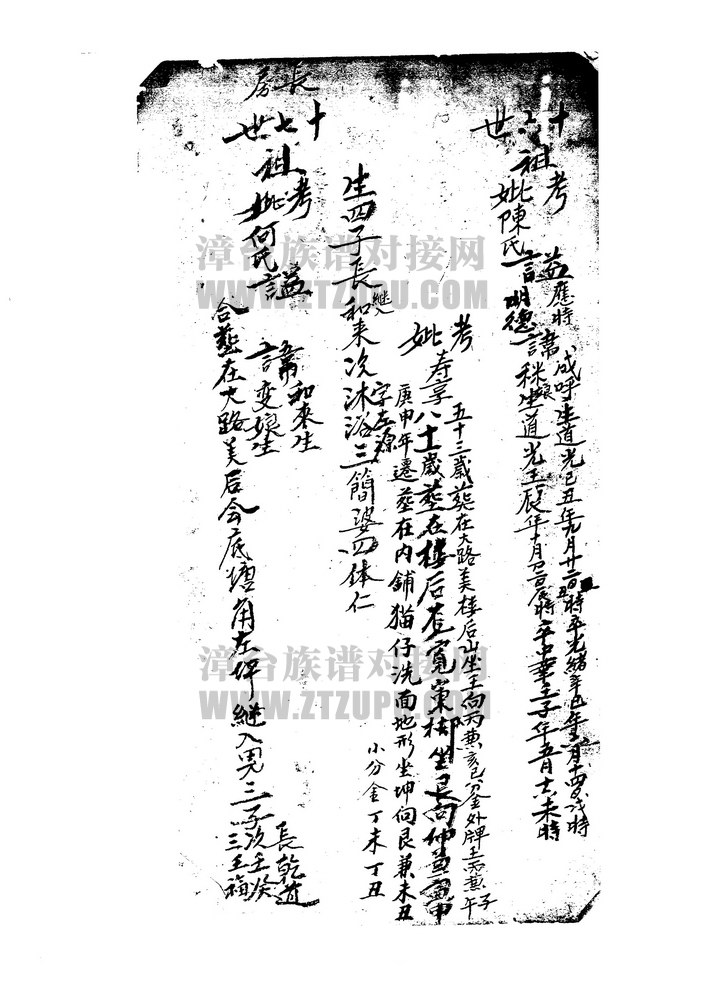 十六世祖
考 諡應時 諱成呼 生道光己丑年九月廿二日丑時 卒光緒辛巳年二月十四日戌時
妣陳氏 諡明德 諱秣娘 生道光壬辰年十月初二日辰時 卒中華壬子年五月十六未時
考 五十三歲葬在大路美樓后山坐壬向丙兼亥巳分金外牌壬丙兼子午
妣 寿享八十一歲葬在樓后 坐艮向坤兼寅申
庚申年遷葬在内鋪猫仔洗面地形坐坤向艮兼未丑
小分金丁未丁丑
生四子長継和来次沐浴字左源三簡婆四体仁
長房
十七世祖
考 諡 諱和來 生
妣何氏 諡 諱变娘 生
合葬在大路美后 底塘角左坪 継入男三子 長乾道 次壬癸 三王福
漳台族谱对接网
WWW.ZTZUPU.COM
漳台族谱对接网
WWW.ZTZUPU.COM